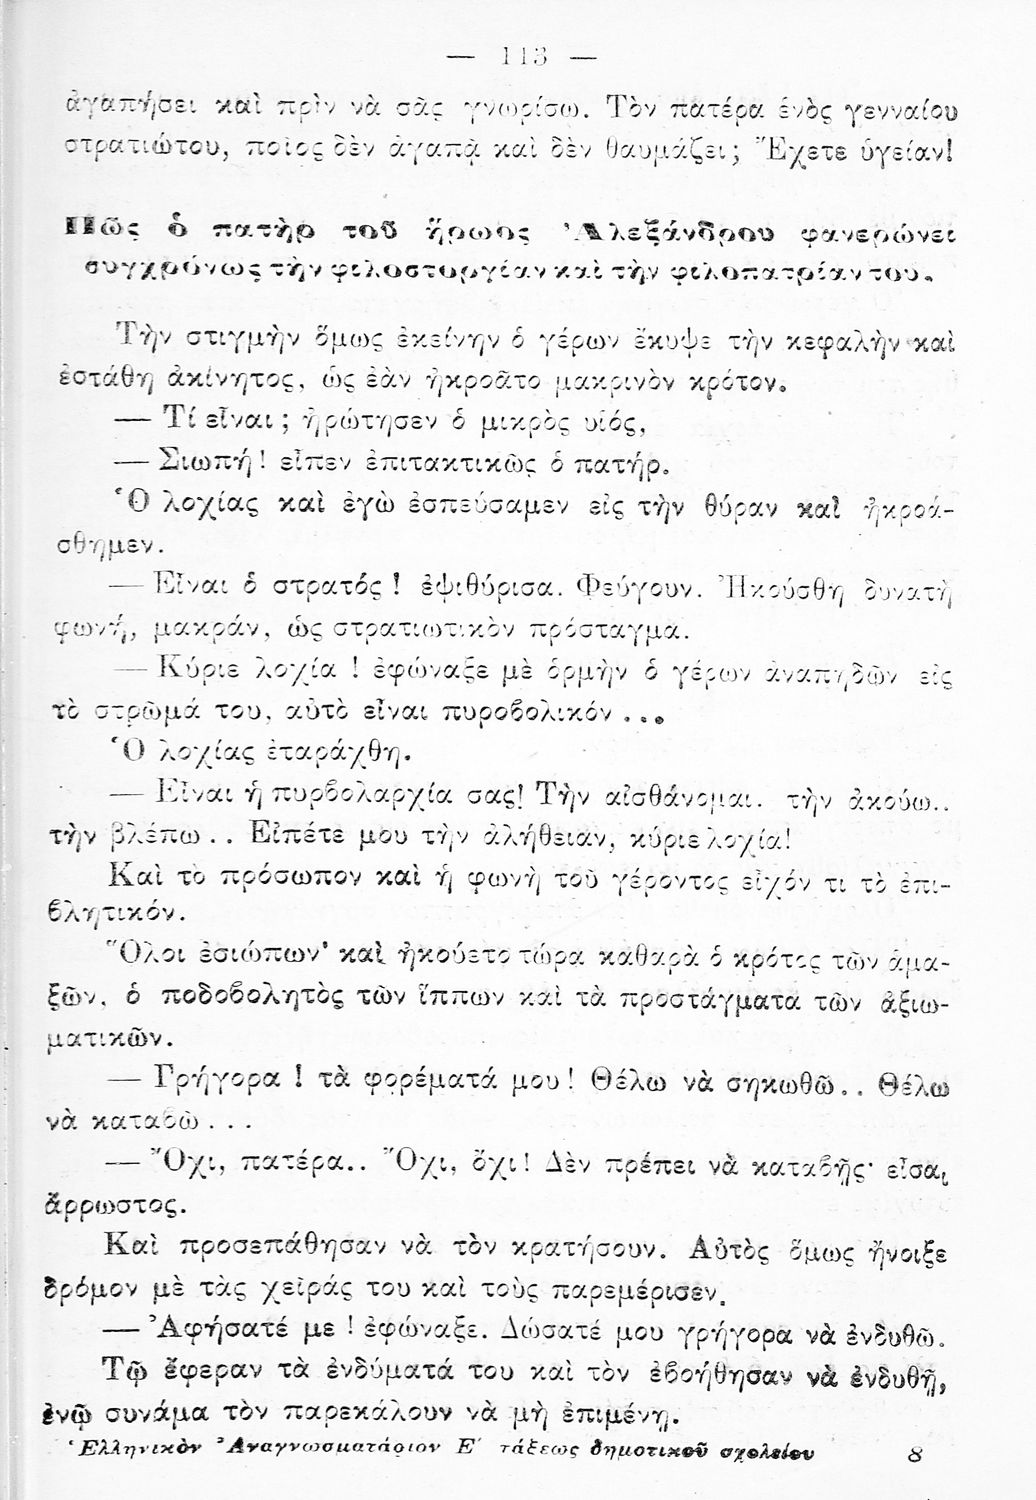 — 113 —
ἀγαπήσει καὶ πρὶν νὰ σᾶς γνωρίσω. Τὸν πατέρα ἑνὸς γενναίου
στρατιώτου, ποῖος δὲν ἀγαπᾷ καὶ δὲν θαυμάζει; Ἔχετε ὑγείαν!
Πῶς ὁ πατὴρ τοῦ ἥρωος Ἀλεξάνδρου φανερώνει
συγχρόνως τὴν φιλοστοργίαν καὶ τὴν φιλοπατρίαν του.
Τὴν στιγμὴν ὅμως ἐκείνην ὁ γέρων ἔκυψε τὴν κεφαλὴν καὶ
ἐστάθη ἀκίνητος, ὡς ἐὰν ἠκροᾶτο μακρινὸν κρότον.
— Τί εἶναι; ἠρώτησεν ὁ μικρὸς υἱός,
— Σιωπή! εἶπεν ἐπιτακτικῶς ὁ πατήρ.
Ὁ λοχίας καὶ ἐγὼ ἐσπεύσαμεν εἰς τὴν θύραν καὶ ἠκροά-
σθημεν.
— Εἶναι ὁ στρατός! ἐψιθύρισα. Φεύγουν. Ἠκούσθη δυνατὴ
φωνή, μακράν, ὡς στρατιωτικὸν πρόσταγμα.
— Κύριε λοχία! ἐφώναξε μὲ ὁρμὴν ὁ γέρων ἀναπηδῶν εἰς
τὸ στρῶμά του, αὐτὸ εἶναι πυροβολικόν...
Ὁ λοχίας ἐταράχθη.
— Εἶναι ἡ πυρβολαρχία σας! Τὴν αἰσθάνομαι. τὴν ἀκούω..
τὴν βλέπω.. Εἰπέτε μου τὴν ἀλήθειαν, κύριε λοχία!
Καὶ τὸ πρόσωπον καὶ ἡ φωνὴ τοῦ γέροντος εἶχόν τι τὸ ἐπι-
βλητικόν.
Ὅλοι ἐσιώπων· καὶ ἠκούετο τώρα καθαρὰ ὁ κρότος τῶν ἁμα-
ξῶν, ὁ ποδοβολητὸς τῶν ἵππων καὶ τὰ προστάγματα τῶν ἀξιω-
ματικῶν.
— Γρήγορα! τὰ φορέματά μου! Θέλω νὰ σηκωθῶ.. Θέλω
νὰ καταβῶ...
— Ὄχι, πατέρα.. Ὄχι, ὄχι! Δὲν πρέπει νὰ καταβῇς· εἶσαι
ἄρρωστος.
Καὶ προσεπάθησαν νὰ τὸν κρατήσουν. Αὐτὸς ὅμως ἤνοιξε
δρόμον μὲ τὰς χεῖράς του καὶ τοὺς παρεμέρισεν.
— Ἀφήσατέ με! ἐφώναξε. Δώσατέ μου γρήγορα νὰ ἐνδυθῶ.
Τῷ ἔφεραν τὰ ἐνδύματά του καὶ τὸν ἐβοήθησαν νὰ ἐνδυθῇ,
ἐνῷ συνάμα τὸν παρεκάλουν νὰ μὴ ἐπιμένῃ.
Ἑλληνικὸν Ἀναγνωσματάριον Ε΄ τάξεως δημοτικοῦ σχολείου 8